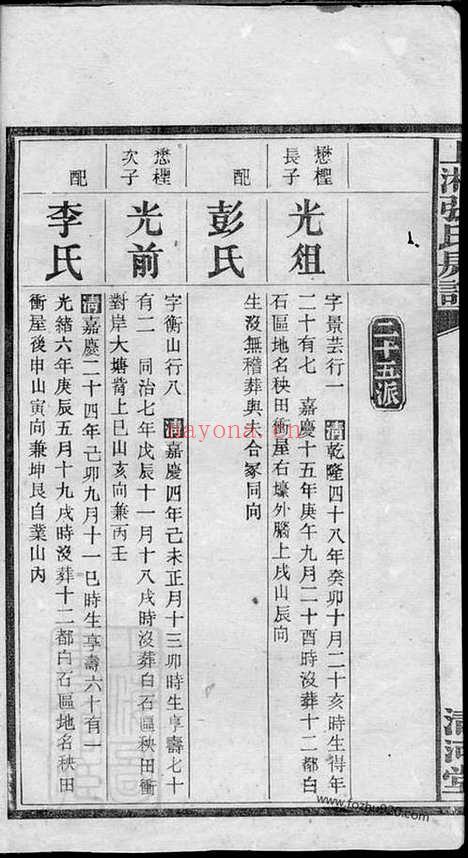 上湘張氏房譜
清河堂
二十五派
懋檉長子
光組
字景芸行一 清乾隆四十八年癸卯十月二十亥時生得年
二十有七 嘉慶十五年庚午九月二十酉時沒葬十二都白
石區地名秧田衝屋右壕外腦上戌山辰向
配
彭氏
生沒無稽葬與夫合冢同向
懋檉次子
光前
字衡山行八 清嘉慶四年己未正月十三卯時生享壽七十
有二 同治七年戊辰十一月十八戌時沒葬白石區秧田衝
對岸大塘背上巳山亥向兼丙壬
配
李氏
清嘉慶二十四年己卯九月十一巳時生享壽六十有一
光緒六年庚辰五月十九戌時沒葬十二都白石區地名秧田
衝屋後申山寅向兼坤艮自業山內
nayona.cn
www.fozhu920.com